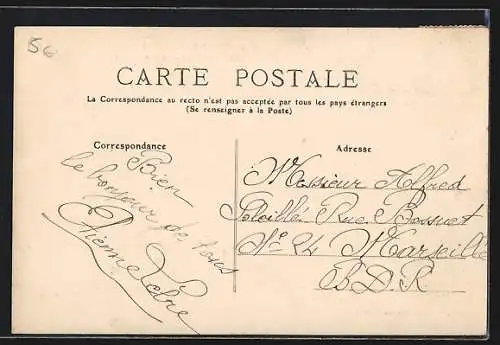 56
CARTE POSTALE
La Correspondance au recto n'est pas acceptée par tous les pays étrangers
(Se renseigner à la Poste)
Correspondance
Adresse
Bien
le bonjour de tous
Messieur Alfred
Rue Bossuet
N° 24 Marseille
B.D.R